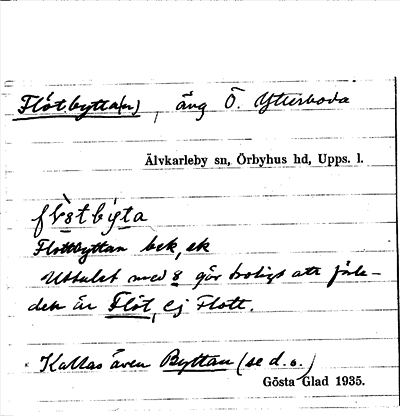 Flötbytta(n), äng Ö. Ytterboda
Älvkarleby sn, Örbyhus hd, Upps. l.
Flottbyttan bek, ek
Uttalet med 8 gör troligt att förle-
den är Flöt, ej Flott.
Kallas även Byttan (se d. o.)
Gösta Glad 1935.